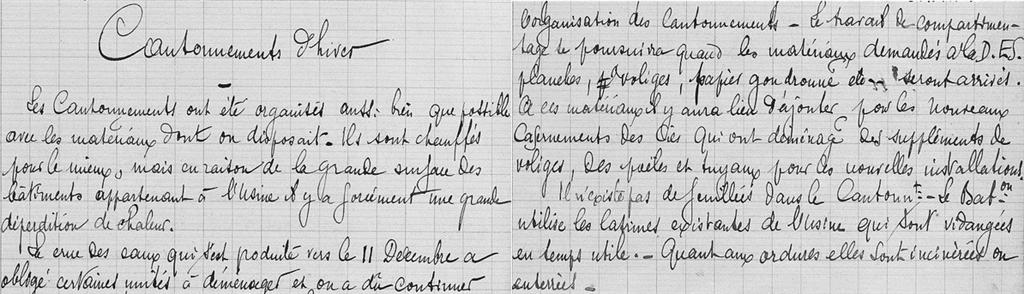 Cantonnements d'hiver
Les Cantonnements ont été organisés aussi bien que possible
avec les matériaux dont on disposait. Ils sont chauffés
pour le mieux, mais en raison de la grande surface des
bâtiments appartenant à l'Usine il y a forcément une grande
déperdition de chaleur.
La crue des eaux qui s'est produite vers le 11 Décembre a
obligé certaines unités à déménager et on a dû continuer
l'organisation des Cantonnements - Le travail de compartimen-
tage se poursuivra quand les matériaux demandés à la D.E.S.
planches, voliges, papier goudronné etc seront arrivés.
A ces matériaux il y aura lieu d'ajouter pour les nouveaux
Casernements des Cies qui ont déménagé des suppléments de
voliges, des poëles et tuyaux pour les nouvelles installations.
Il n'existe pas de feuillées dans le Cantonnt - Le Baton
utilise les latrines existantes de l'usine qui sont vidangées
en temps utile. - Quant aux ordures elles sont incinérées ou
enterrées.